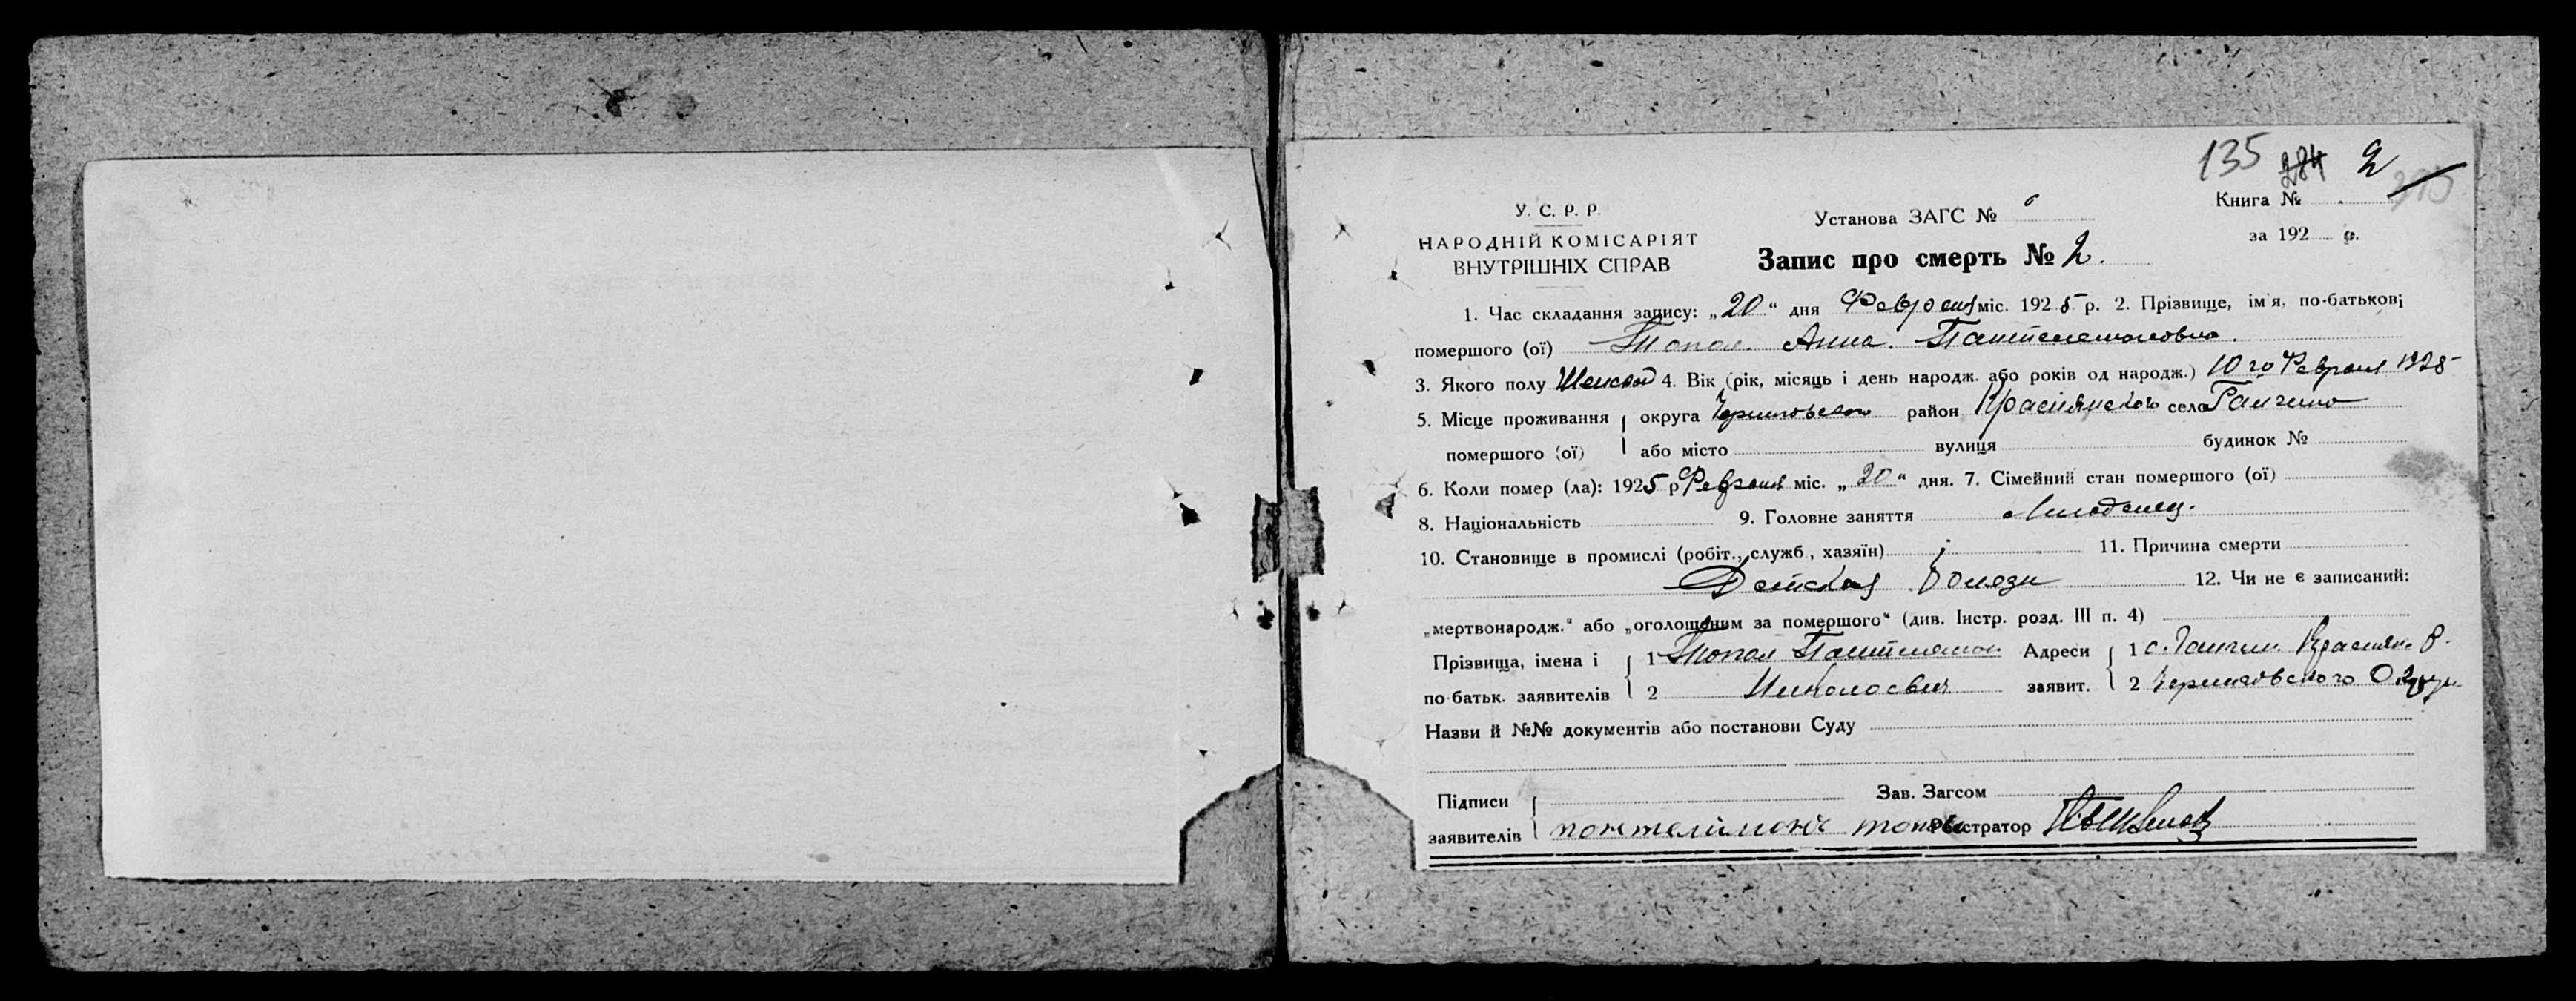 135 284 2
У. С. Р. Р.
НАРОДНІЙ КОМІСАРІЯТ
ВНУТРІШНІХ СПРАВ
Установа ЗАГС №
Книга №
за 192 р.
Запис про смерть № 2.
1. Час складання запису: „20“ дня Февраля міс. 1925 р. 2. Прізвище, ім'я, по-батькові
помершого (ої) Топол. Анна. Пантелемоновна.
3. Якого полу Женской 4. Вік (рік, місяць і день народж. або років од народж.) 10 го Февраля 1925
5. Місце проживання округа Черниговского район село
помершого (ої) або місто вулиця будинок №
6. Коли помер (ла): 1925 р Февраля міс. „20“ дня. 7. Сімейний стан помершого (ої)
8. Національність 9. Головне заняття Младенец.
10. Становище в промислі (робіт., служб., хазяїн) 11. Причина смерти
Детская болезн 12. Чи не є записаний:
„мертвонародж.“ або „оголошеним за помершого“ (див. Інстр. розд. III п. 4)
Прізвища, імена і 1 Топол Пантелемон Адреси 1 с.
по-батьк. заявителів 2 Николаевич заявит. 2 Черниговского
Назви й №№ документів або постанови Суду
Підписи Зав. Загсом
заявителів Реєстратор